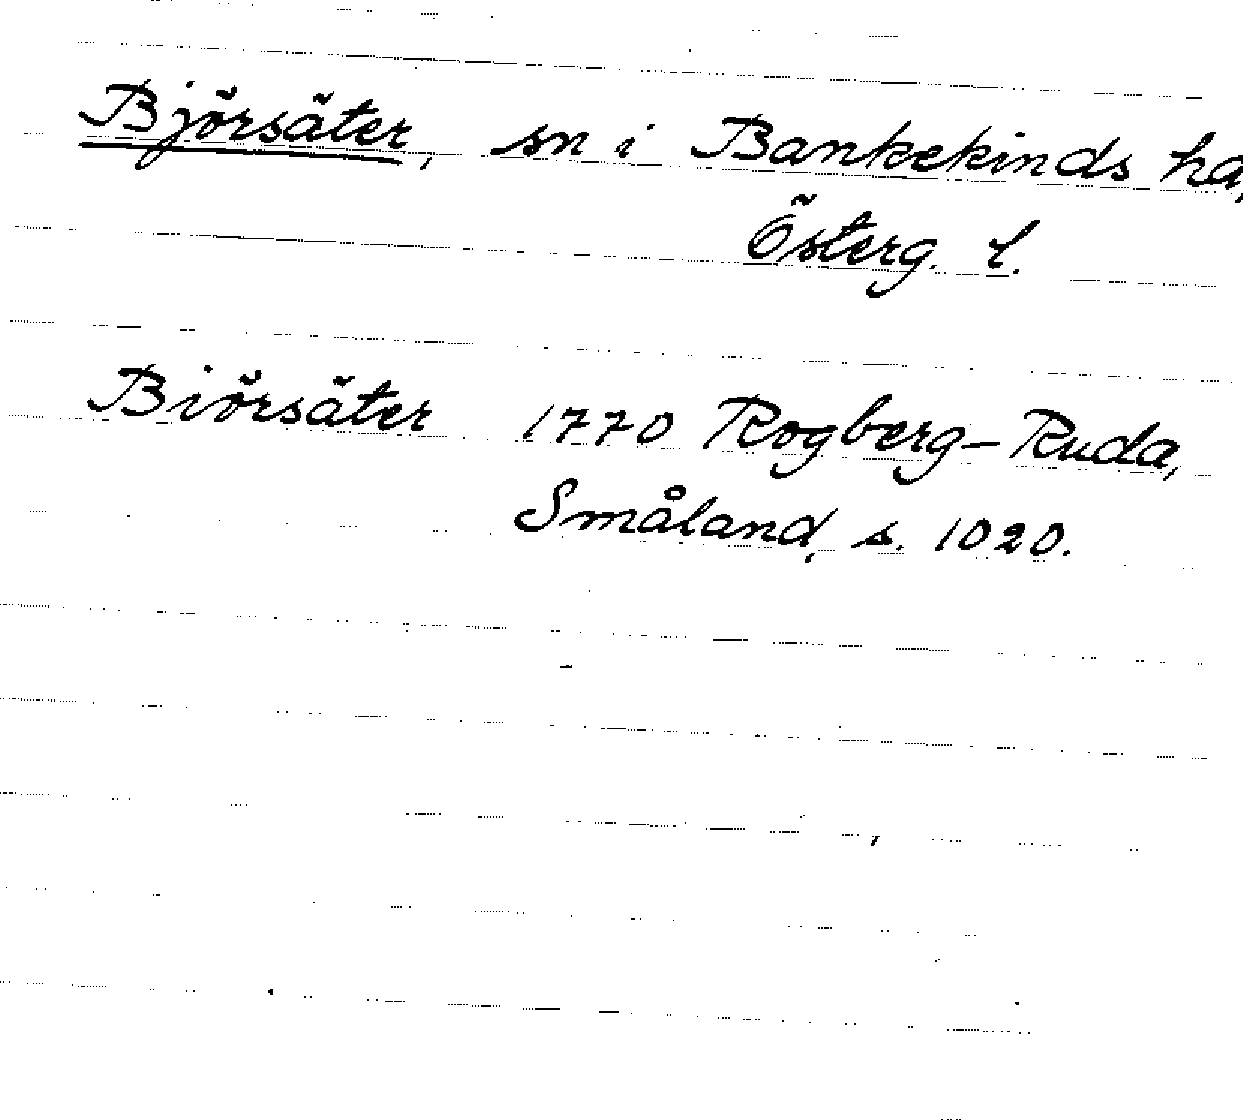 Björsäter, sn i Bankekinds ha,
Österg. l.
Biörsäter 1770 Rogberg-Ruda,
Småland, s. 1020.